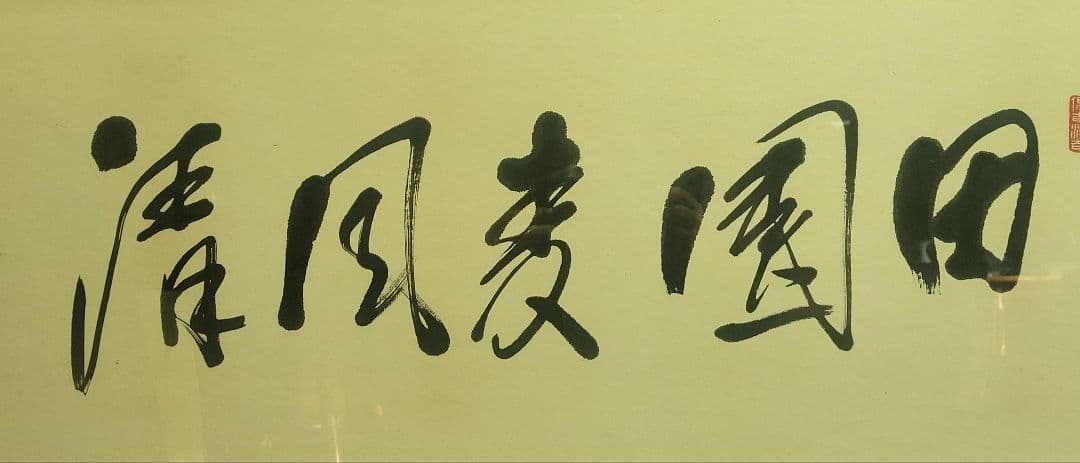 田園麦风清